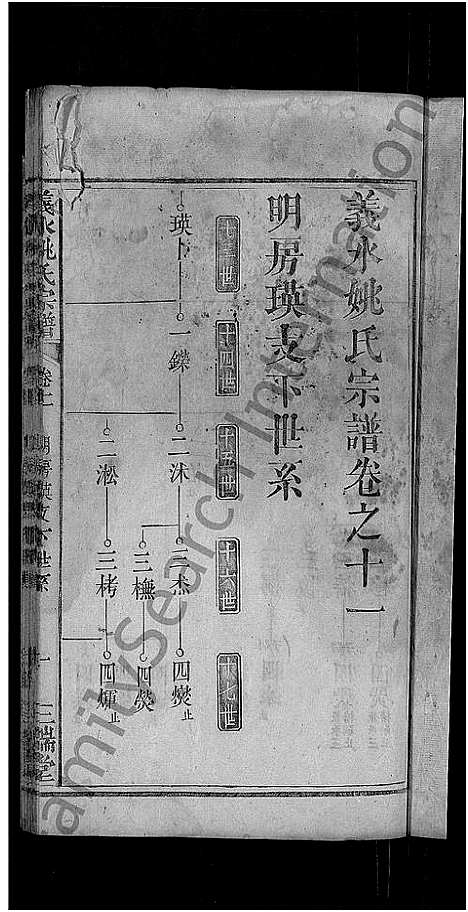 義水姚氏宗譜卷之十一
明房瑛支下世系
十三世
十四世
十五世
十六世
十七世
瑛 一鑅 二沬 三杰 四燮 止
三橅 四熒
二淞 三栲 四煇 止
義水姚氏宗譜
卷十一
明房瑛支下世系
一
三瑞堂
FamilySearch International